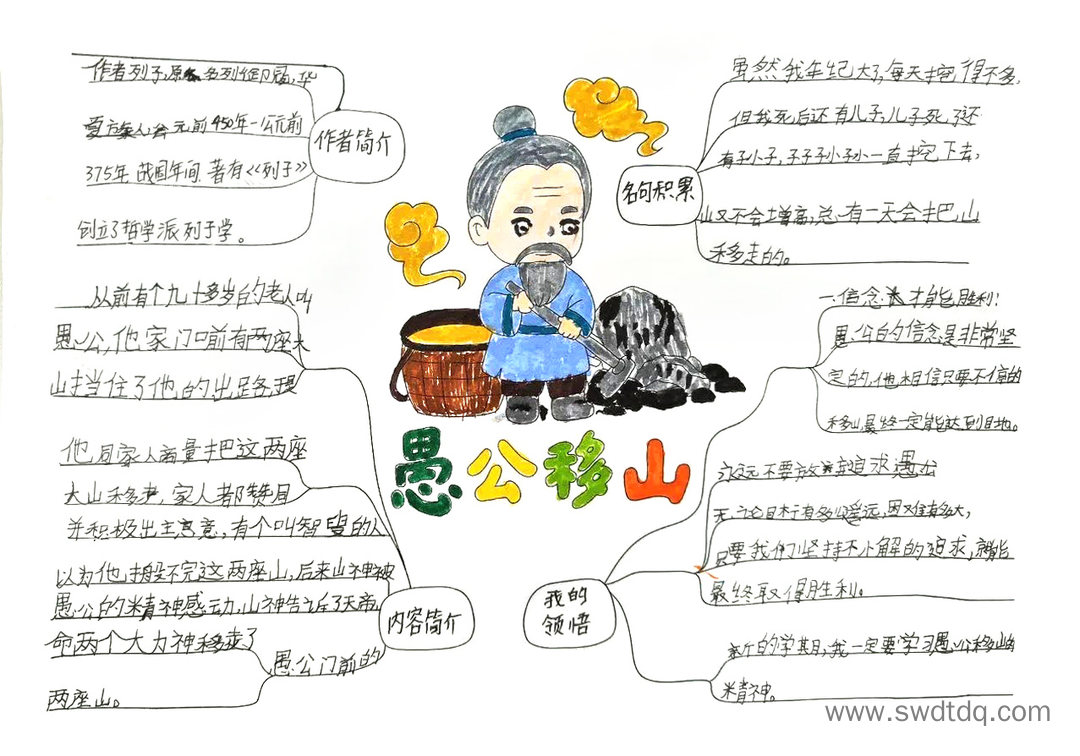 愚公移山
作者简介
作者列子,原名列御寇,华
夏族人公元前450年-公元前
375年 战国年间 著有《列子》
创立了哲学派列子学。
名句积累
虽然我年纪大了,每天挖得不多,
但我死后还有儿子,儿子死了还
有孙子,子子孙孙一直挖下去,
山又不会增高,总有一天会把山
移走的。
内容简介
从前有个九十多岁的老人叫
愚公,他家门口前有两座大
山挡住了他的出路,现
他同家人商量把这两座
大山移走,家人都赞同
并积极出主意,有个叫智叟的人
以为他搬不完这两座山,后来山神被
愚公的精神感动,山神告诉了天帝
命两个大力神移走了
愚公门前的
两座山。
我的
领悟
一.信念才能胜利!
愚公的信念是非常坚
定的,他相信只要不停的
移山最终一定能达到目地。
永远不要放弃追求愚公
无论目标有多么遥远,困难有多大,
只要我们坚持不懈的追求,就能
最终取得胜利。
新的学期,我一定要学习愚公移山的
精神。
www.swdtdq.com